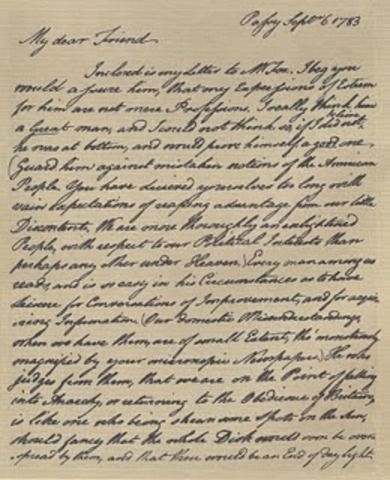 Passy Sept. 6 1783
My dear Friend
Inclosed is my Letter to Mr Fox. I beg you
would assure him, that my Expressions of Esteem
for him are not mere Professions. I really think him
a Great man, and I could not think so, if I did not believe
he was at bottom, and would prove himself a good one.
Guard him against mistaken notions of the American
People. You have deceived yourselves too long with
vain expectations of reaping advantage from our little
Discontents. We are more thoroughly an enlightened
People, with respect to our Political Interests than
perhaps any other under Heaven. Every man among us
reads, and is so easy in his Circumstances as to have
Leisure for Conversations of Improvement, and for acqui-
ring Information. Our domestic Misunderstandings,
when we have them, are of small Extent, tho' monstrously
magnified by your microscopic Newspapers. He who
judges from them, that we are on the Point of falling
into Anarchy, or returning to the Obedience of Britain,
is like one who being shewn some Spots in the Sun,
should fancy that the whole Disk would soon be over-
spread by them, and that there would be an End of day light.